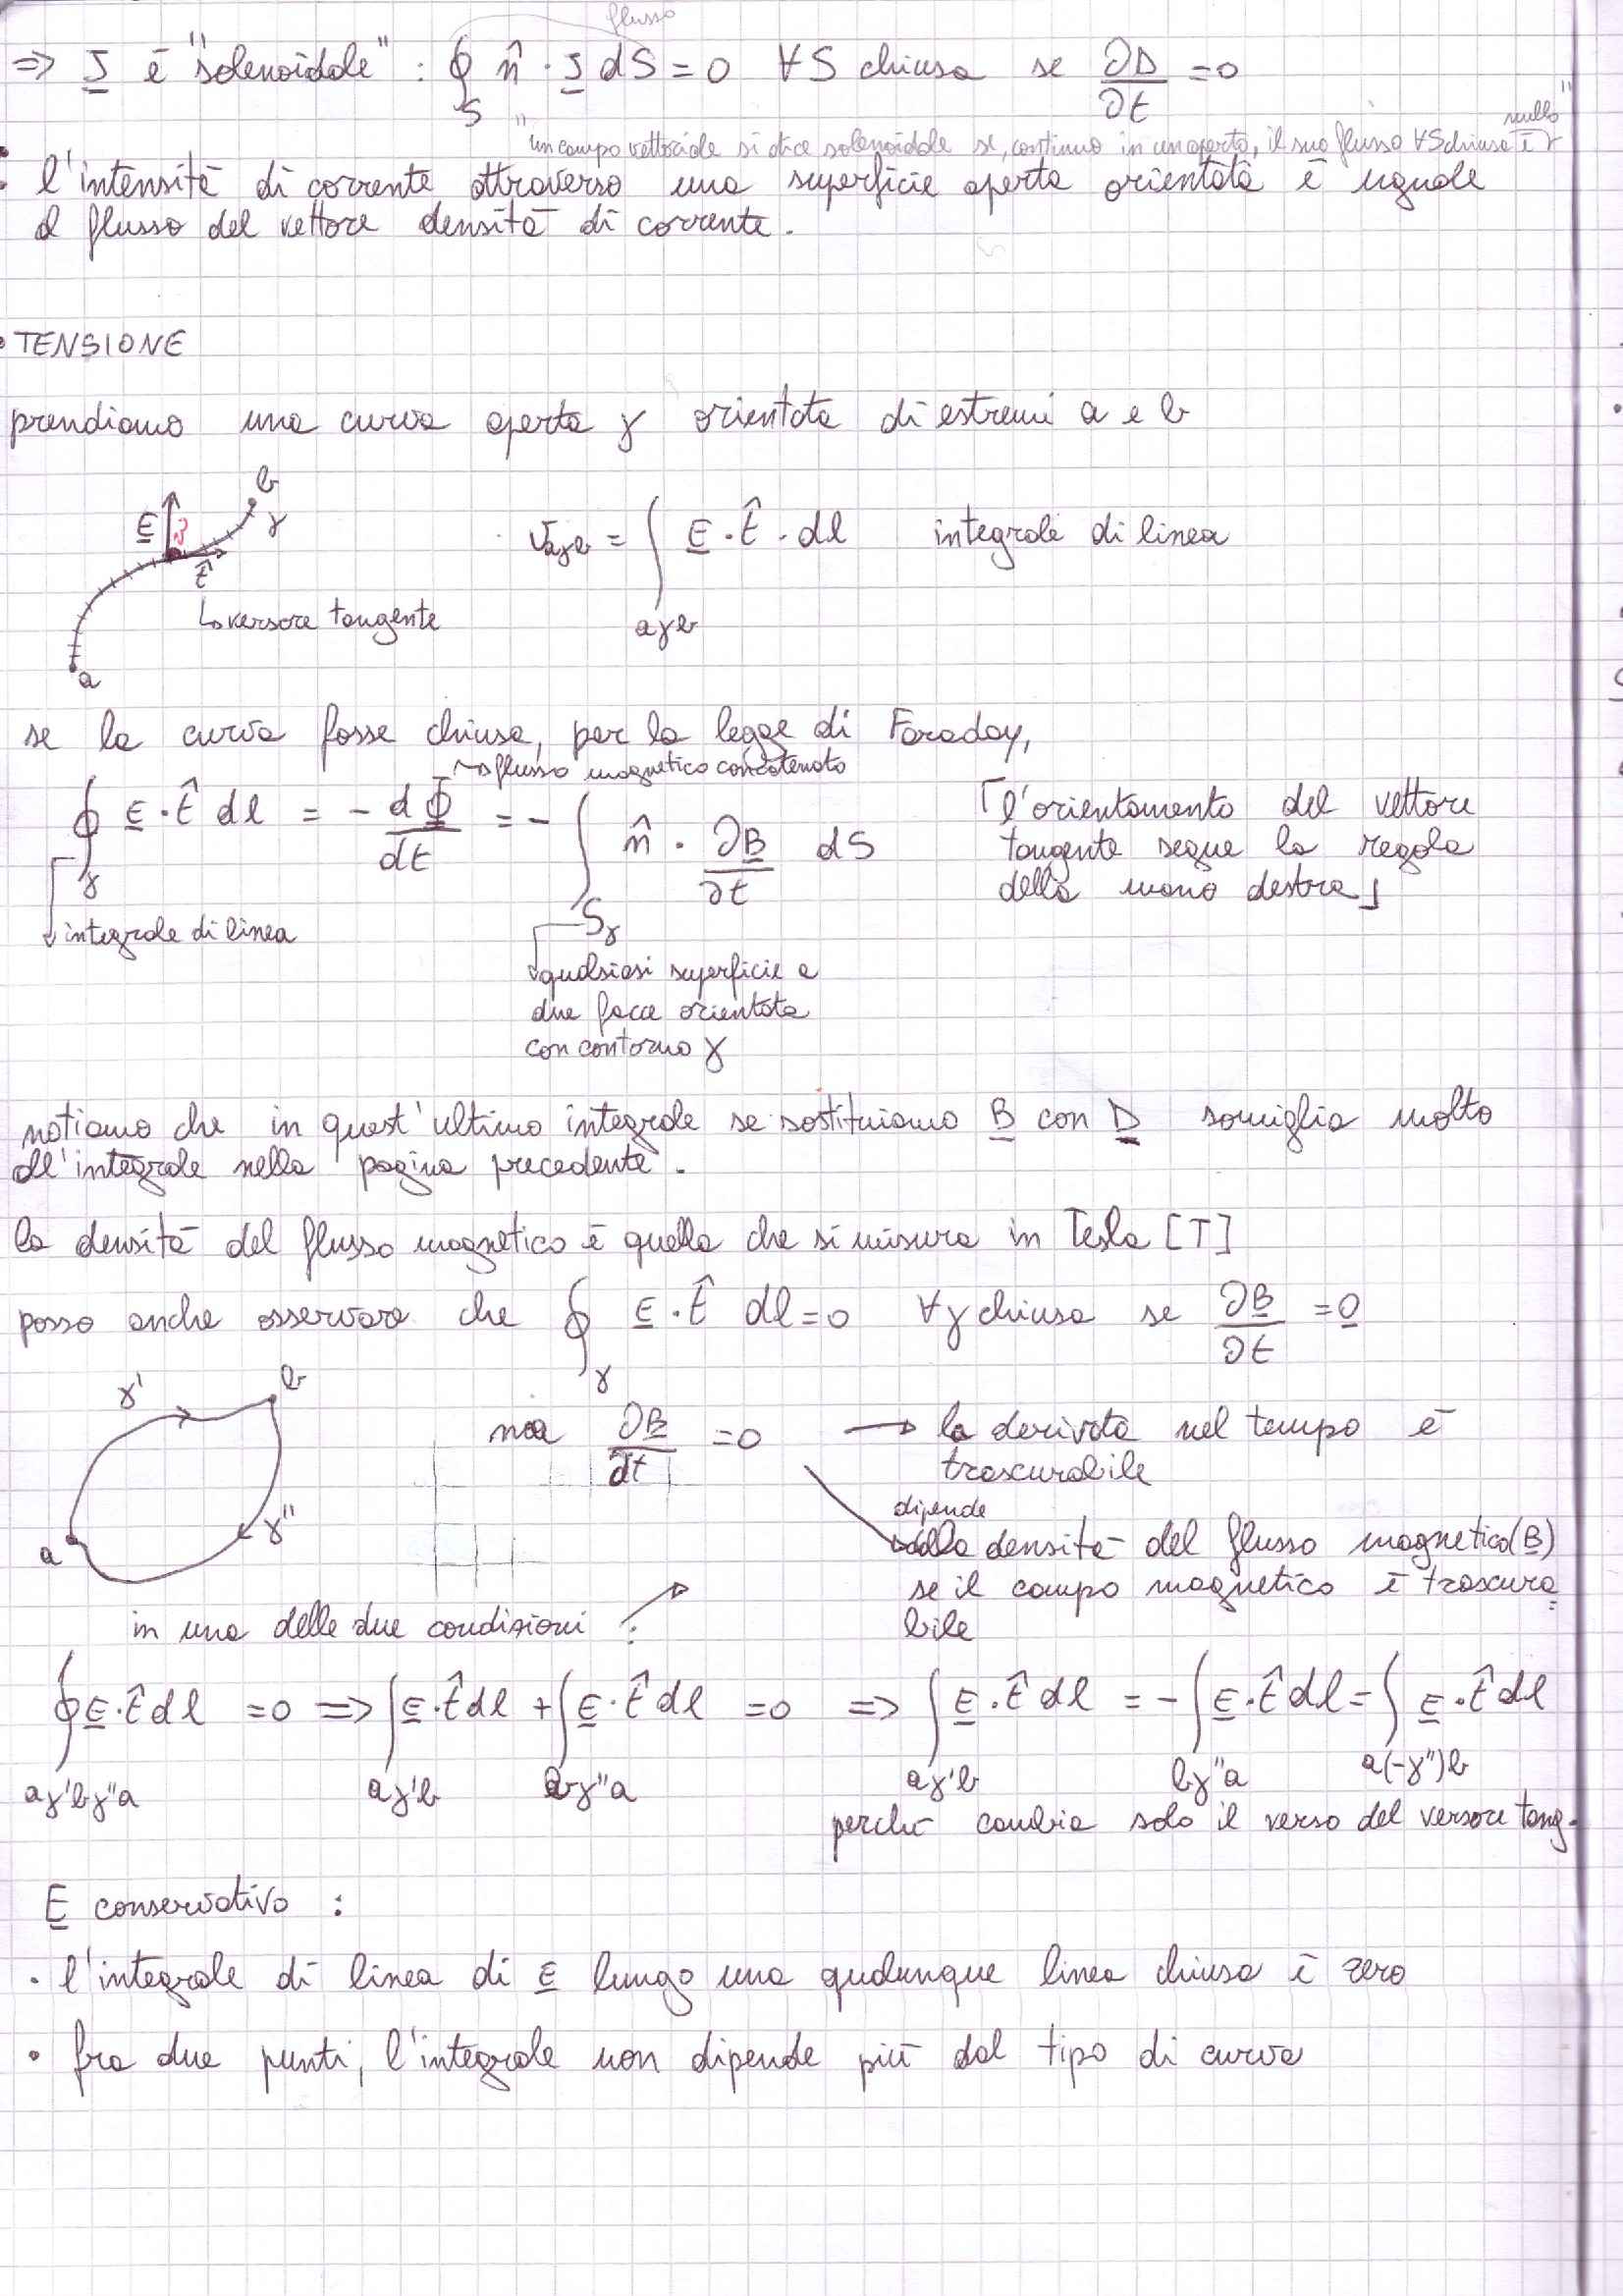 flusso
⇒ J è "solenoidale" : ∮_S n̂ · J dS = 0 ∀ S chiusa se ∂D/∂t = 0
"un campo vettoriale si dice solenoidale se, continuo in un aperto, il suo flusso ∀ S chiusa è nullo"
l'intensità di corrente attraverso una superficie aperta orientata è uguale
al flusso del vettore densità di corrente.
• TENSIONE
prendiamo una curva aperta γ orientata di estremi a e b
b
E γ
t̂
↳ versore tangente
a
v_aγb = ∫_aγb E · t̂ · dl integrale di linea
se la curva fosse chiusa, per la legge di Faraday,
→ flusso magnetico concatenato
∮_γ E · t̂ dl = - dΦ/dt = - ∫_Sγ n̂ · ∂B/∂t dS
⌈l'orientamento del vettore
tangente segue la regola
della mano destra⌋
integrale di linea
qualsiasi superficie a
due facce orientata
con contorno γ
notiamo che in quest'ultimo integrale se sostituiamo B con D somiglia molto
all'integrale nella pagina precedente.
la densità del flusso magnetico è quella che si misura in Tesla [T]
posso anche osservare che ∮_γ E · t̂ dl = 0 ∀ γ chiusa se ∂B/∂t = 0
γ' b
a γ''
∂B/∂t = 0 → la derivata nel tempo è
trascurabile
dipende
dalla densità del flusso magnetico (B)
se il campo magnetico è trascura=
bile
in una delle due condizioni :
∮_aγ'bγ''a E · t̂ dl = 0 ⇒ ∫_aγ'b E · t̂ dl + ∫_bγ''a E · t̂ dl = 0 ⇒ ∫_aγ'b E · t̂ dl = - ∫_bγ''a E · t̂ dl = ∫_a(-γ'')b E · t̂ dl
perché cambia solo il verso del versore tang.
E conservativo :
• l'integrale di linea di E lungo una qualunque linea chiusa è zero
• fra due punti, l'integrale non dipende più dal tipo di curva